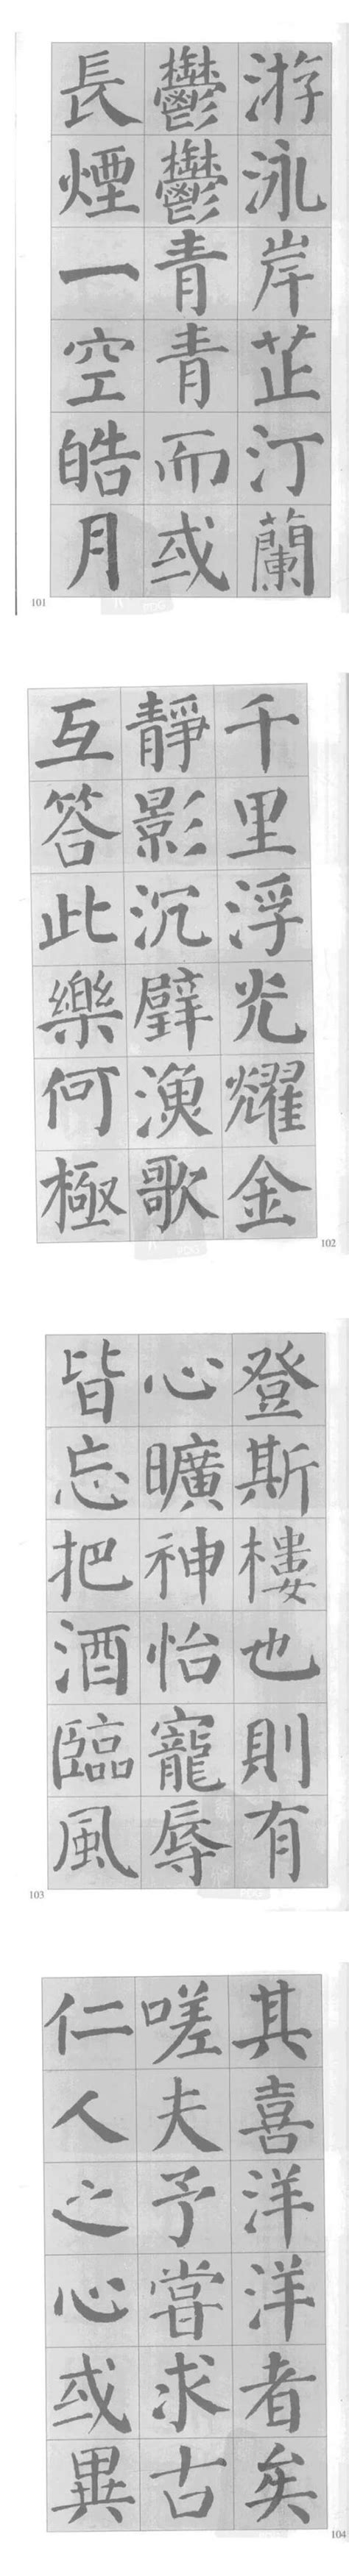 游泳岸芷汀蘭
鬱鬱青青而或
長煙一空皓月
101
千里浮光耀金
靜影沉璧漁歌
互答此樂何極
102
登斯樓也則有
心曠神怡寵辱
皆忘把酒臨風
103
其喜洋洋者矣
嗟夫予嘗求古
仁人之心或異
104